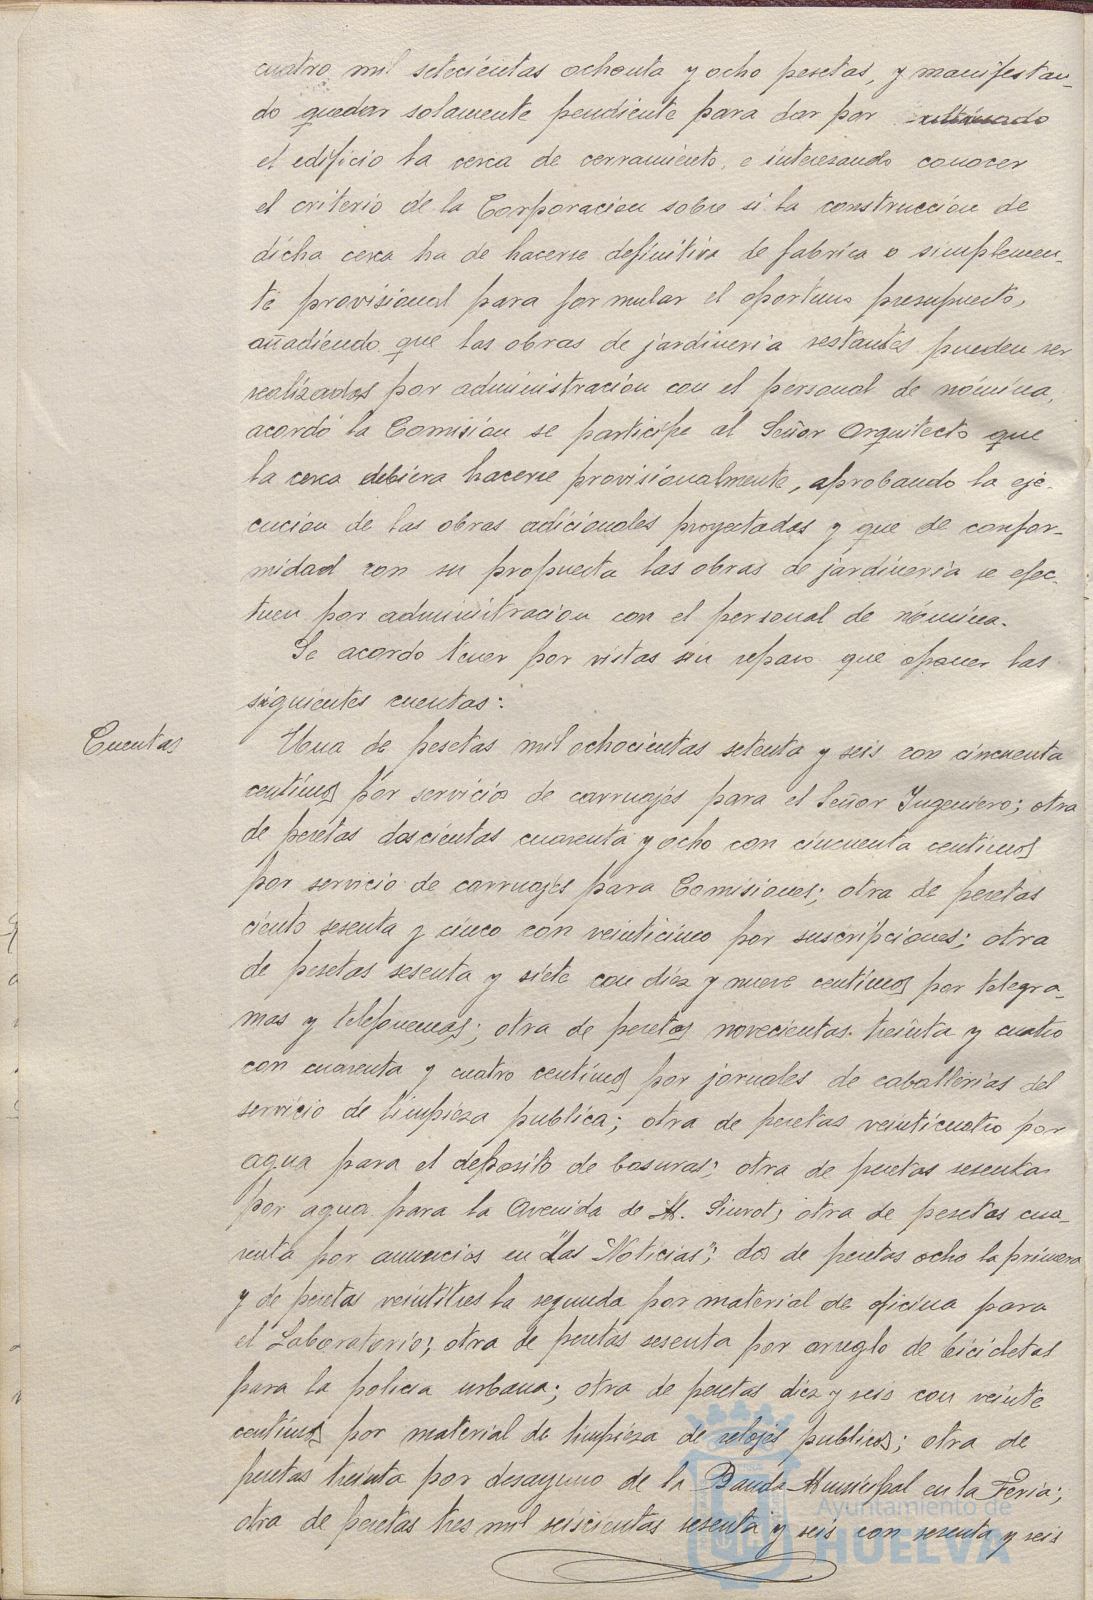 cuatro mil setecientas ochenta y ocho pesetas, y manifestan-
do quedar solamente pendiente para dar por ultimado
el edificio la cerca de cerramiento, e interesando conocer
el criterio de la Corporacion sobre si la construcción de
dicha cerca ha de hacerse definitiva de fabrica o simplemen-
te provisional para formular el oportuno presupuesto,
añadiendo que las obras de jardineria restantes pueden ser
realizadas por administración con el personal de nómina,
acordó la Comisión se participe al Señor Arquitecto que
la cerca debiera hacerse provisionalmente, aprobando la eje-
cucion de las obras adicionales proyectadas y que de confor-
midad con su propuesta las obras de jardineria se efec-
tuen por administracion con el personal de nómina.
Se acordo tener por vistas sin reparo que oponer las
siguientes cuentas:
Cuentas
Una de pesetas mil ochocientas setenta y seis con cincuenta
centimos por servicio de carruajes para el Señor Ingeniero; otra
de pesetas doscientas cuarenta y ocho con cincuenta centimos
por servicio de carruajes para Comisiones; otra de pesetas
ciento sesenta y cinco con veinticinco por suscripciones; otra
de pesetas sesenta y siete con diez y nueve centimos por telegra-
mas y telefonemas; otra de pesetas novecientas treinta y cuatro
con cuarenta y cuatro centimos por jornales de caballerias del
servicio de limpieza publica; otra de pesetas veinticuatro por
agua para el deposito de basuras; otra de pesetas sesenta
por agua para la Avenida de M. Siurot; otra de pesetas cua-
renta por anuncios en "Las Noticias"; dos de pesetas ocho la primera
y de pesetas veintitres la segunda por material de oficina para
el Laboratorio; otra de pesetas sesenta por arreglo de bicicletas
para la policia urbana; otra de pesetas diez y seis con veinte
centimos por material de limpieza de relojes publicos; otra de
pesetas treinta por desayuno de la Banda Municipal en la Feria;
otra de pesetas tres mil seiscientas sesenta y seis con sesenta y seis
Ayuntamiento de
HUELVA